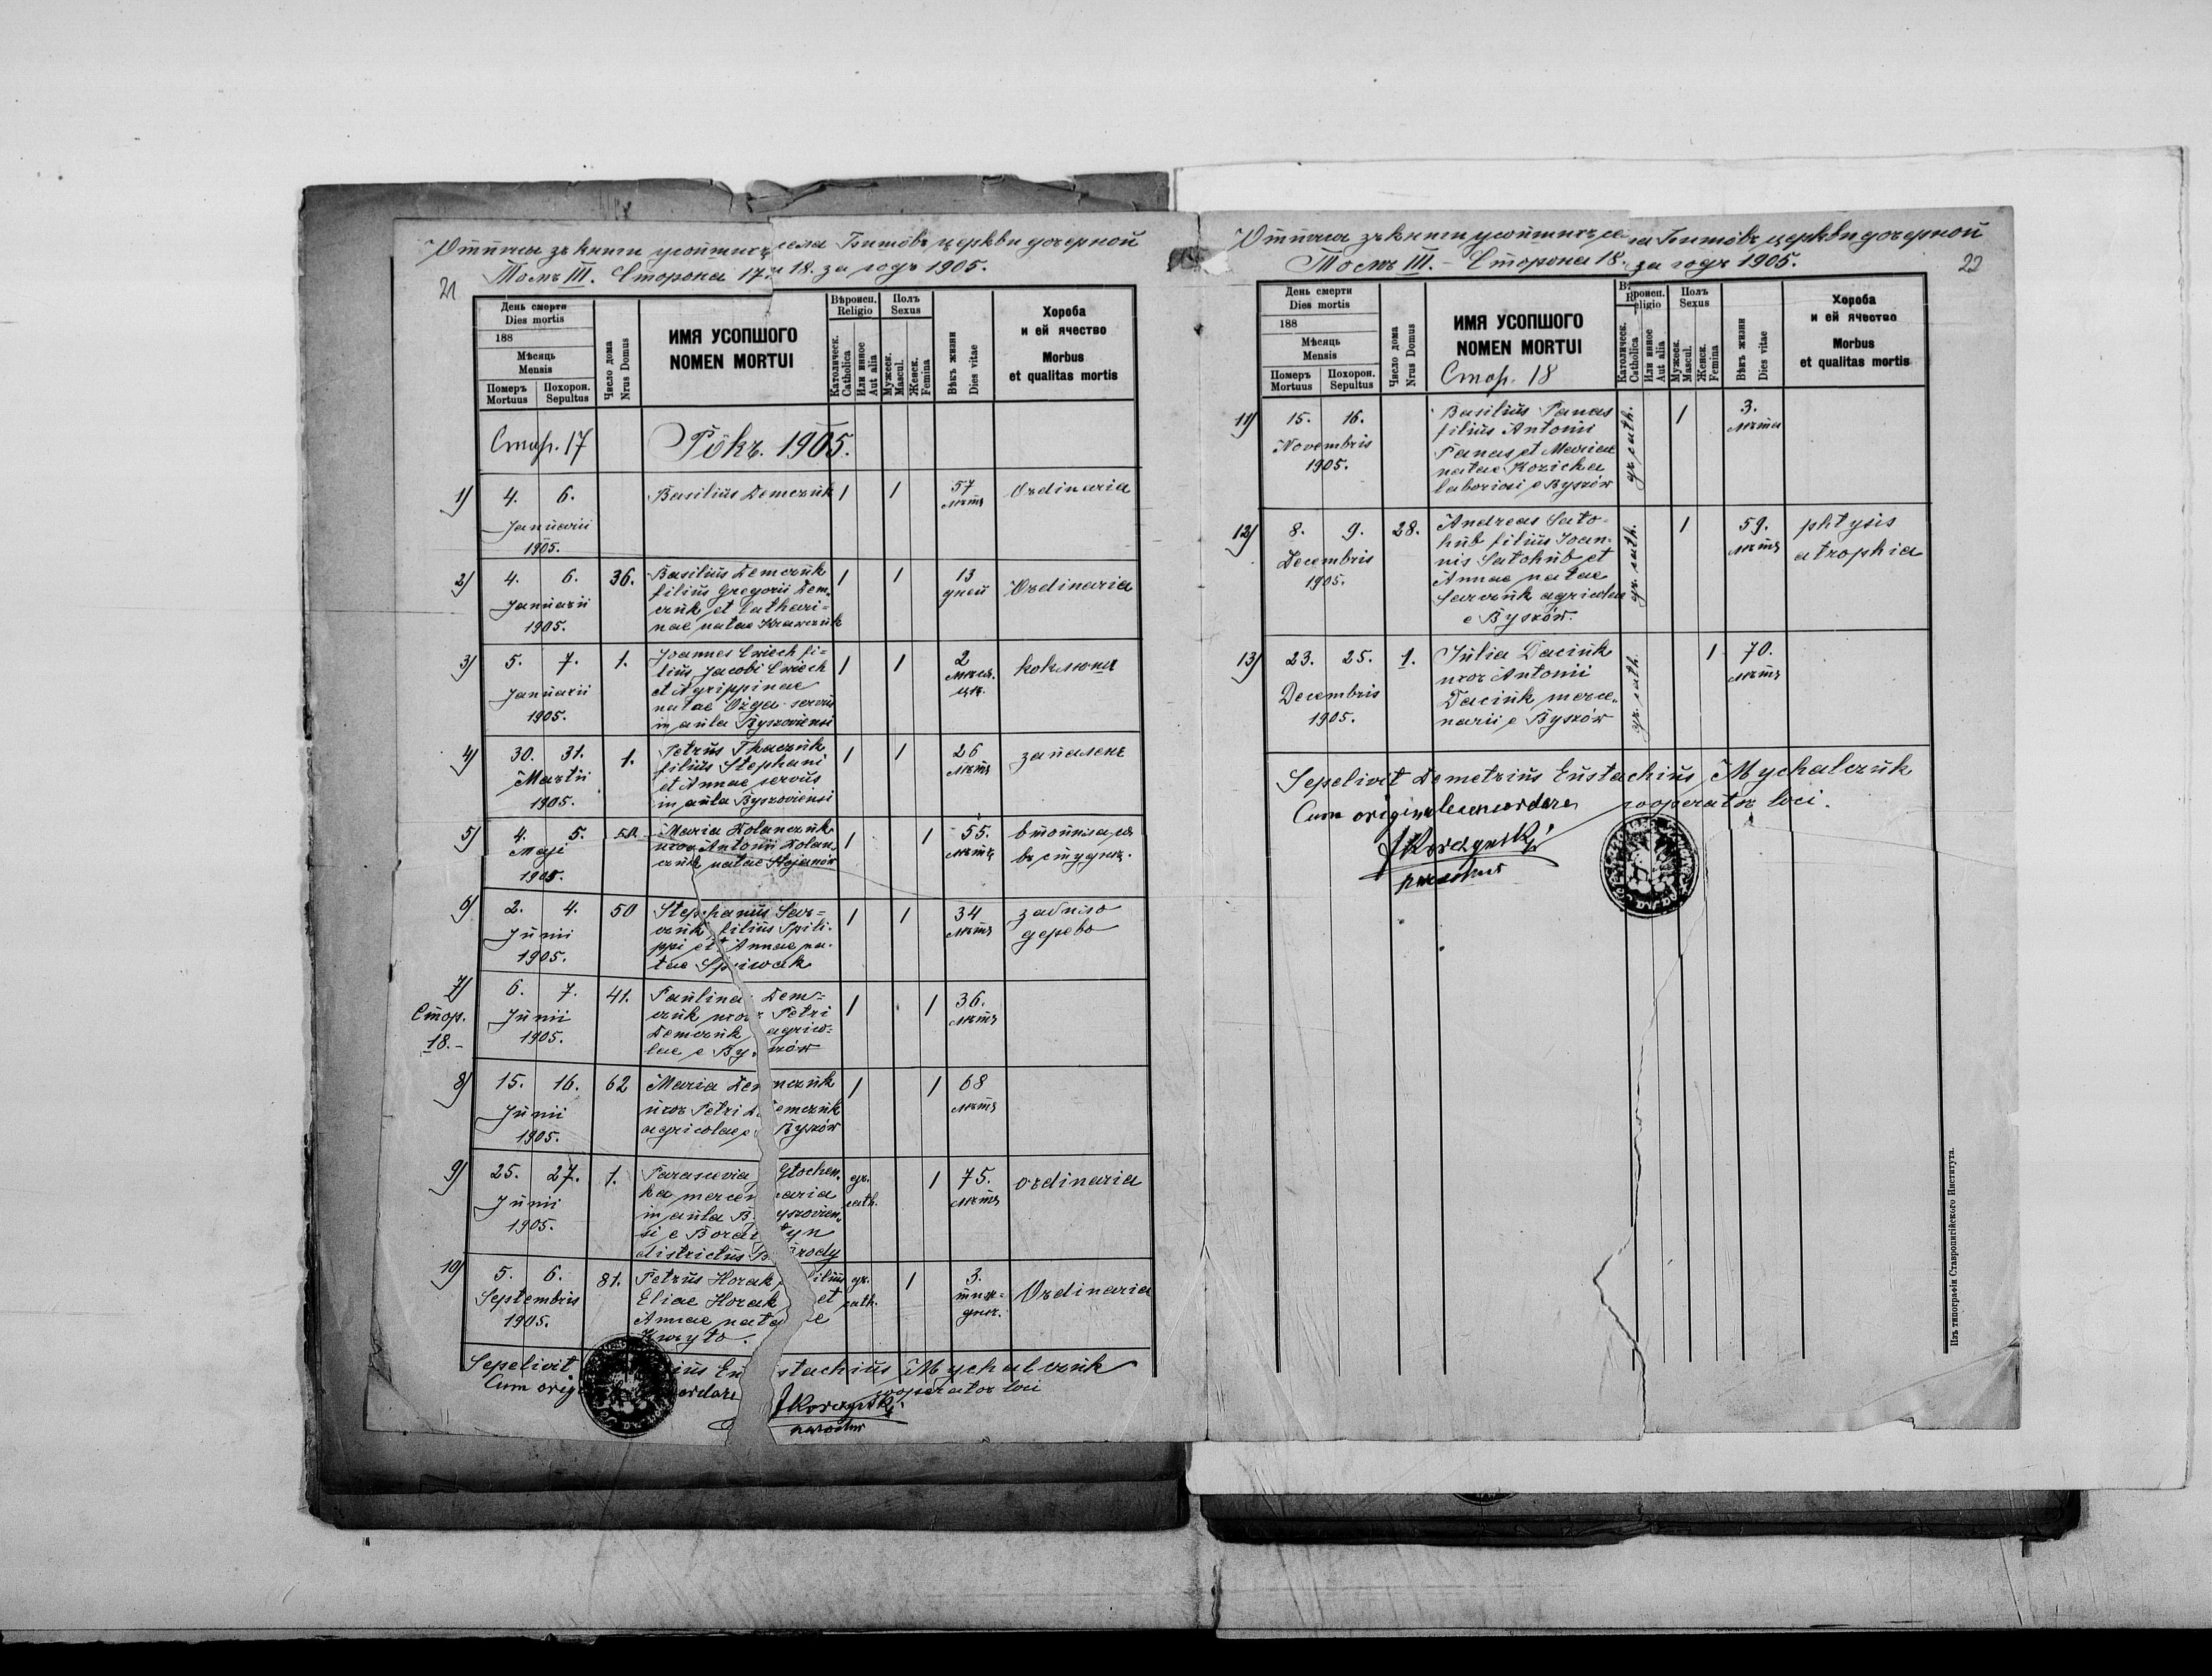 Отписъ зъ книги усопшихъ села Бишôвъ церкви дочерной
Томъ III. Сторона 17. и 18. за годъ 1905.
21
День смерти
Dies mortis
188
Мѣсяць
Mensis
Померъ
Mortuus
Похорон.
Sepultus
Число дома
Nrus Domus
ИМЯ УСОПШОГО
NOMEN MORTUI
Вѣроисп.
Religio
Католическ.
Catholica
Или инное
Aut alia
Полъ
Sexus
Мужеск.
Mascul.
Женск.
Femina
Вѣкъ жизни
Dies vitae
Хороба
и ей ячество
Morbus
et qualitas mortis
Стор. 17 Рôкъ. 1905.
1) 4. 6. Basilius Demczuk 1 1 57 Ordinaria
Januarii лѣтъ
1905.
2) 4. 6. 36. Basilius Demczuk 1 1 13 Ordinaria
Januarii filius Gregorii Dem- дней
1905. czuk et Cathari-
nae natae Krawczuk
3) 5. 7. 1. Joannes Cwiech fi- 1 1 2 коклюшъ
Januarii lius Jacobi Cwiech
1905. et Agrippinae
natae Ożga servus
in aula Byszoviensi
4) 30. 31. 1. Petrus Tkaczuk 1 1 26 запаленє
Martii filius Stephani лѣтъ
1905. et Annae servus
in aula Byszoviensi
5) 4. 5. Maria Dolanczuk 1 1 55. втопилась
Maji uxor Antonii Dolan- лѣтъ въ студни.
1905. czuk natae Stojanów
6) 2. 4. 50 Stephanus Sav- 1 1 34 забило
Junii czuk filius Phili- лѣтъ дерево
1905. ppi et Annae na-
tae Spiwak
7) 6. 7. 41. Paulina Dem- 1 1 36.
Стор. Junii czuk uxor Petri лѣтъ
18.- 1905. Demczuk agrico-
lae e Byszów
8) 15. 16. 62 Maria Demczuk 1 1 68
Junii uxor Petri Demczuk лѣтъ
1905. agricolae e Byszów
9) 25. 27. 1. Parascevia Głochen- gr. 1 75. ordinaria
Junii ka mercenaria cath. лѣтъ
1905. in aula Byszovien-
si e
districtus Brody
10) 5. 6. 81. Petrus Horak filius gr. 1 3. Ordinaria
Septembris Eliae Horak et cath. тиж-
1905. Annae natae днѣ.
Sepelivit Eustachius Mychalczuk
Cum cooperator loci
JKorczyński
parochus
Отписъ зъ книги усопшихъ села Бишôвъ церкви дочерной
Томъ III. - Сторона 18. за годъ 1905.
22
День смерти
Dies mortis
188
Мѣсяць
Mensis
Померъ
Mortuus
Похорон.
Sepultus
Число дома
Nrus Domus
ИМЯ УСОПШОГО
NOMEN MORTUI
Стор. 18
Вѣроисп.
Religio
Католическ.
Catholica
Или инное
Aut alia
Полъ
Sexus
Мужеск.
Mascul.
Женск.
Femina
Вѣкъ жизни
Dies vitae
Хороба
и ей ячество
Morbus
et qualitas mortis
11) 15. 16. Basilius Panas gr. cath. 1 3.
Novembris filius Antonii лѣта
1905. Panas et Mariae
natae Kozicka
laboriosi e Byszów
12) 8. 9. 28. Andreas Sato- gr. cath. 1 59. phtysis
Decembris hub filius Joan- лѣтъ atrophia
1905. nis Satohub et
Annae natae
Savczuk agricolae
e Byszów.
13) 23. 25. 1. Julia Daciuk gr. cath. 1 70.
Decembris uxor Antonii лѣтъ
1905. Daciuk merce-
narii e Byszów
Sepelivit Demetrius Eustachius Mychalczuk
Cum originale concordare cooperator loci.
JKorczyński
parochus
Изъ типографіи Ставропигійского Института.